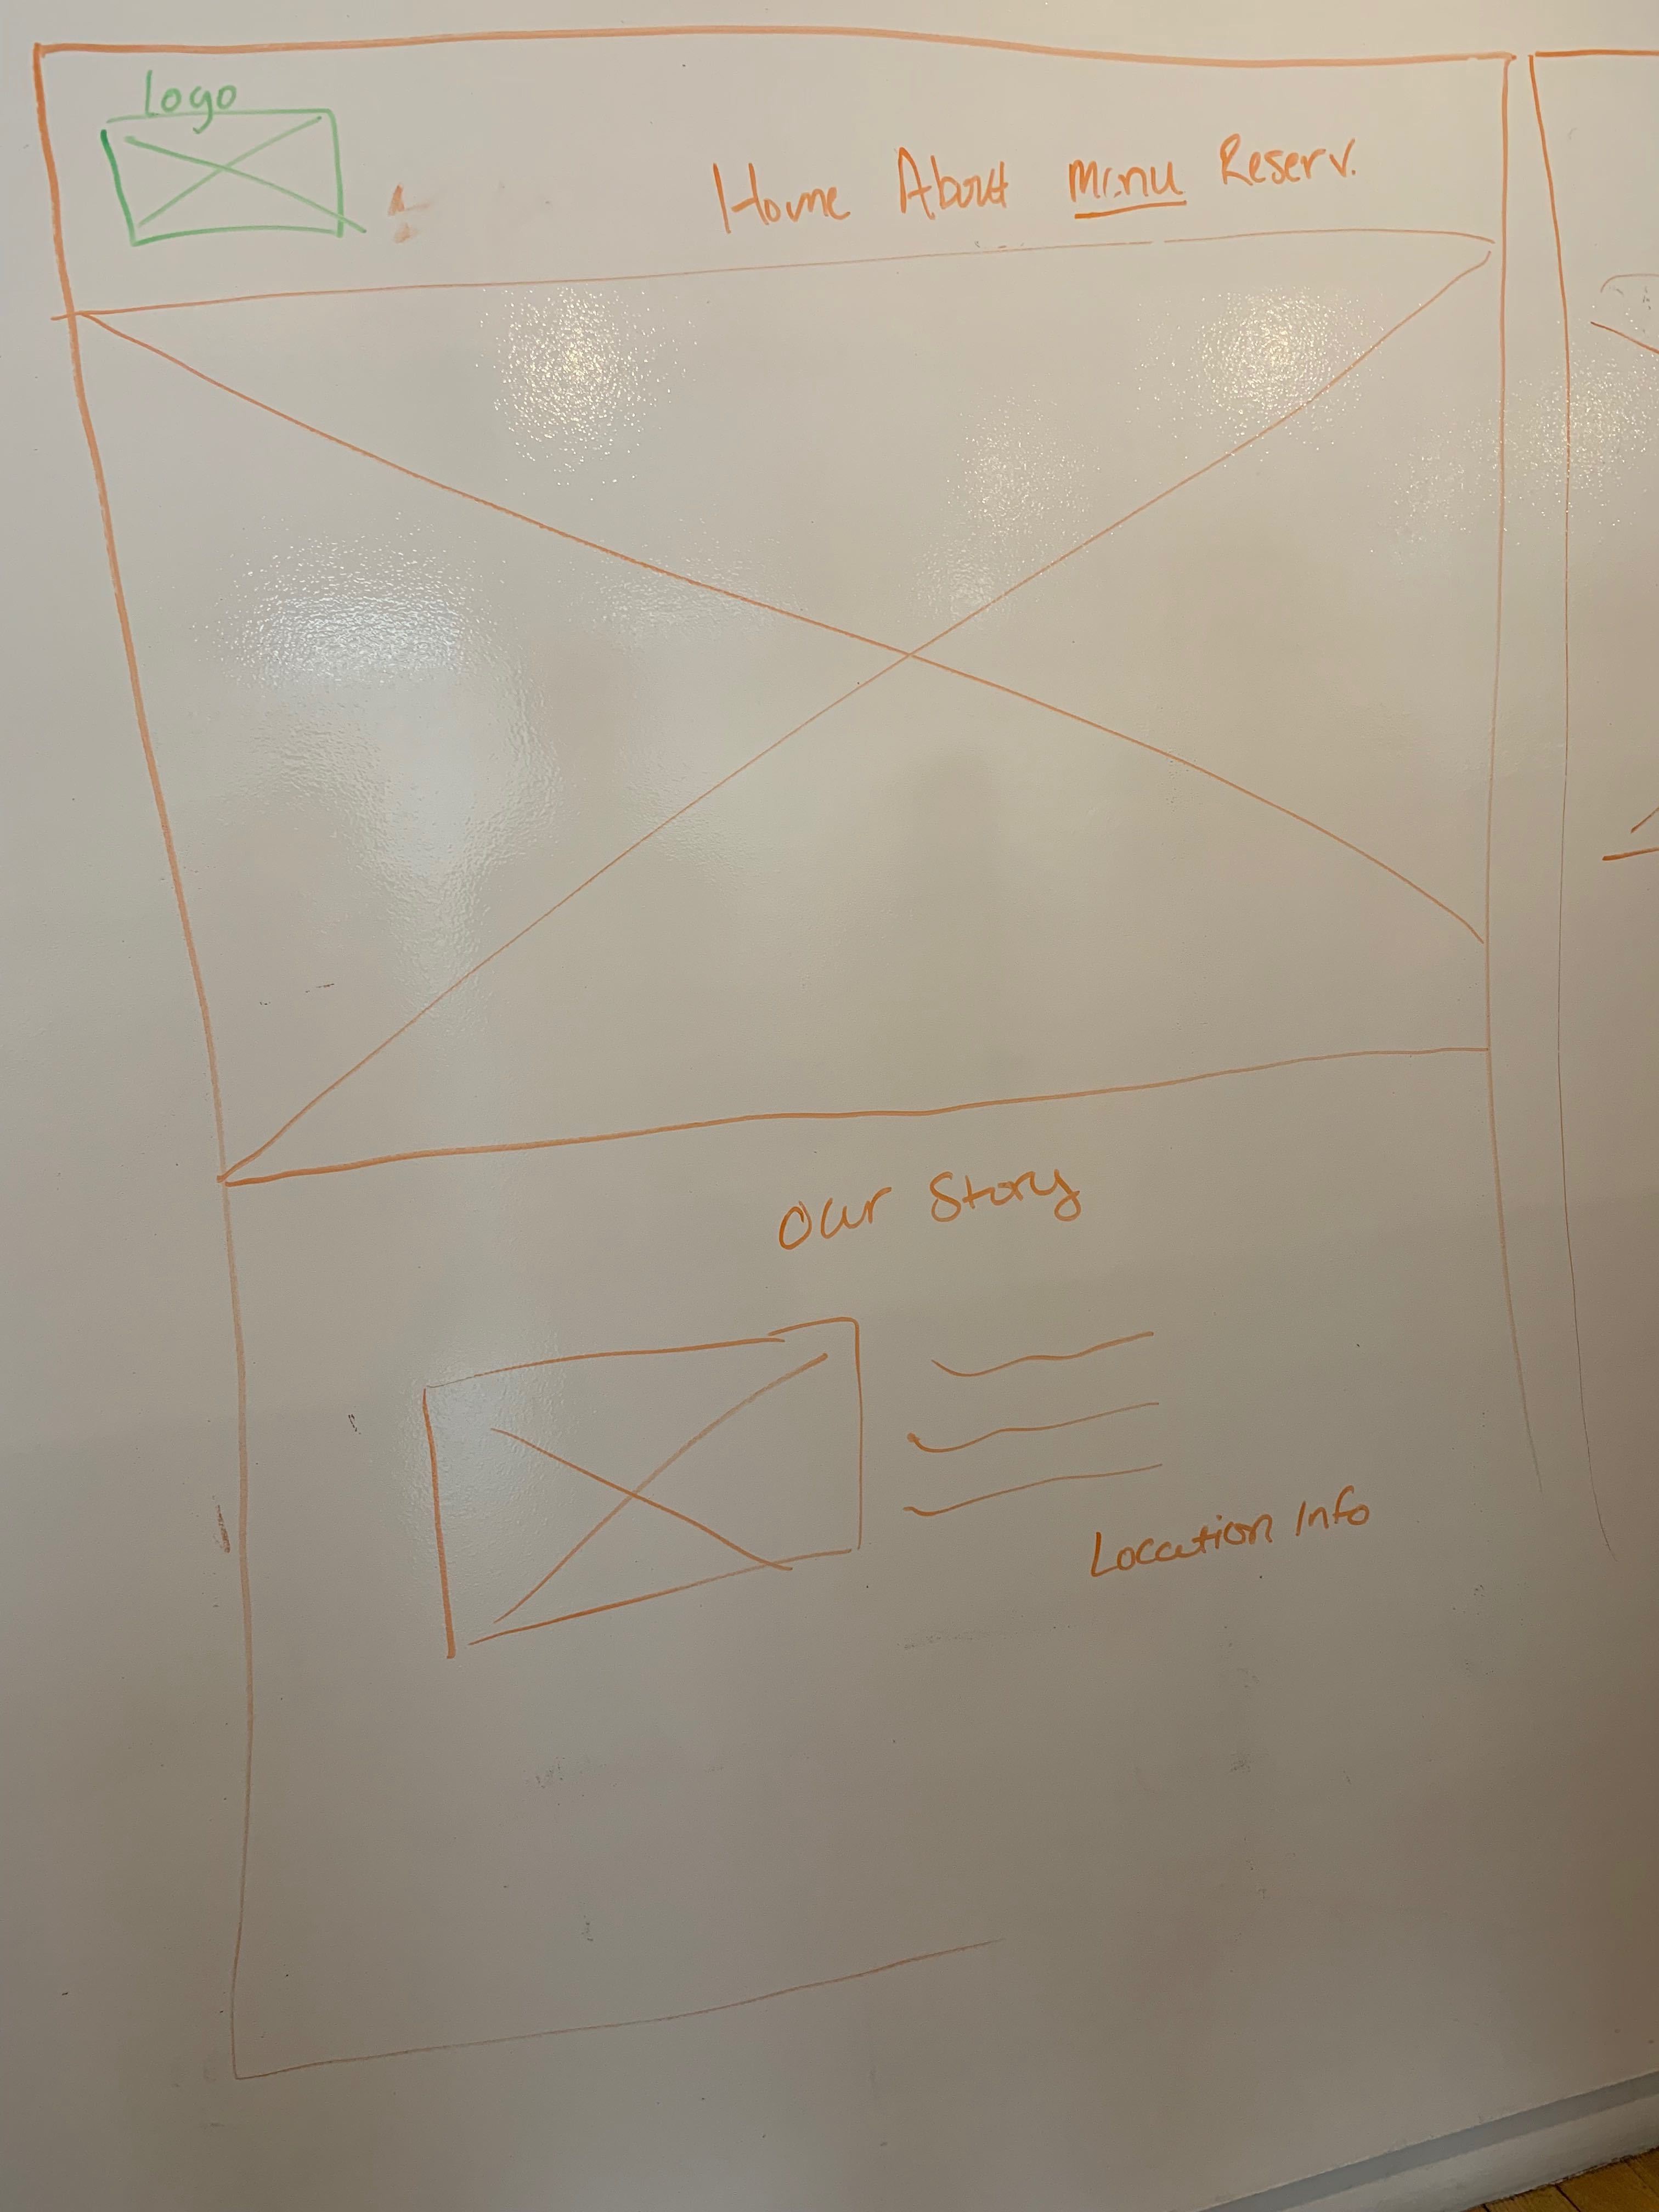 Logo
Home About Menu Reserv.
Our Story
Location Info